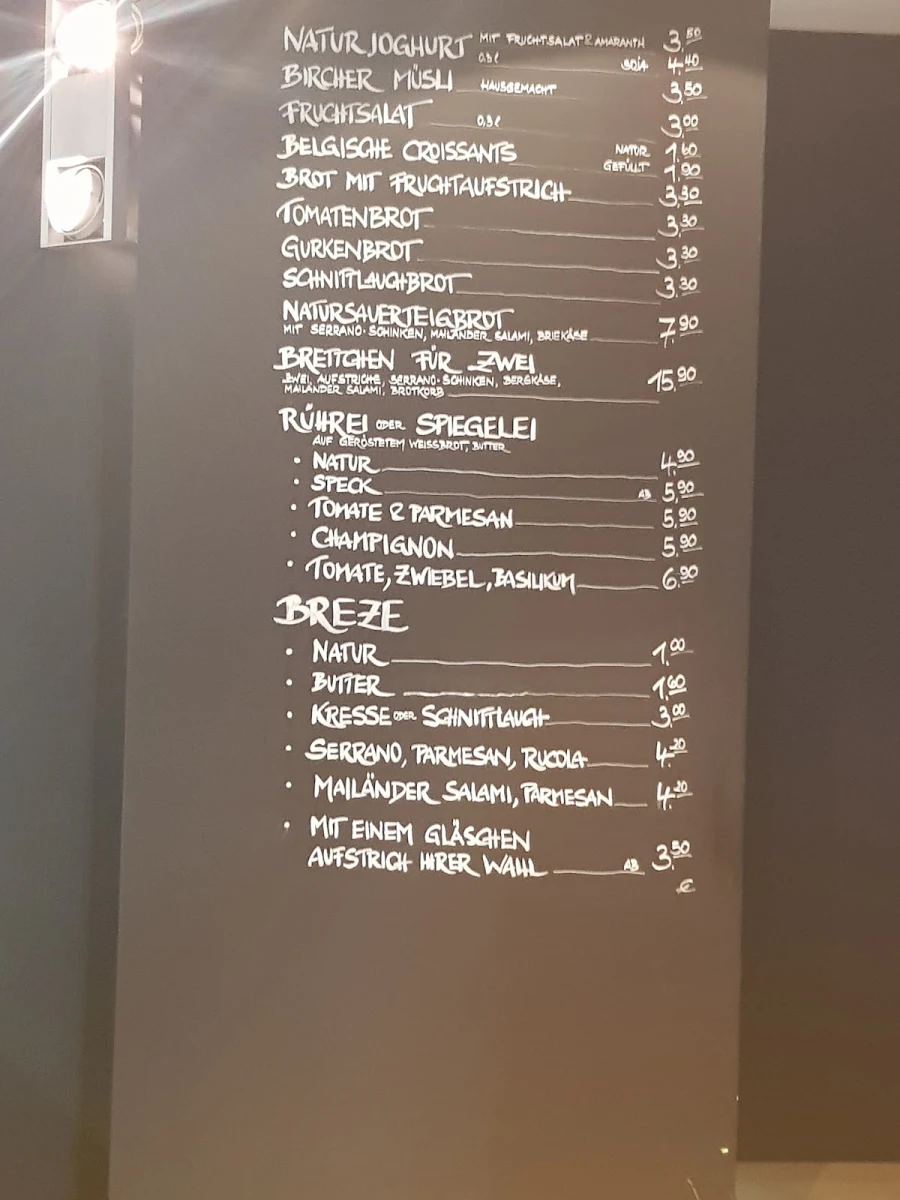 NATURJOGHURT MIT FRUCHTSALAT & AMARANTH 3,50
0,3 l SOJA 4,40
BIRCHER MÜSLI HAUSGEMACHT 3,50
FRUCHTSALAT 0,3 l 3,00
BELGISCHE CROISSANTS NATUR 1,60
GEFÜLLT 1,90
BROT MIT FRUCHTAUFSTRICH 3,30
TOMATENBROT 3,30
GURKENBROT 3,30
SCHNITTLAUCHBROT 3,30
NATURSAUERTEIGBROT 7,90
MIT SERRANO-SCHINKEN, MAILÄNDER SALAMI, BRIEKÄSE
BRETTCHEN FÜR ZWEI 15,90
ZWEI AUFSTRICHE, SERRANO-SCHINKEN, BERGKÄSE,
MAILÄNDER SALAMI, BROTKORB
RÜHREI ODER SPIEGELEI
AUF GERÖSTETEM WEISSBROT, BUTTER
• NATUR 4,90
• SPECK AB 5,90
• TOMATE & PARMESAN 5,90
• CHAMPIGNON 5,90
• TOMATE, ZWIEBEL, BASILIKUM 6,90
BREZE
• NATUR 1,00
• BUTTER 1,60
• KRESSE ODER SCHNITTLAUCH 3,00
• SERRANO, PARMESAN, RUCOLA 4,20
• MAILÄNDER SALAMI, PARMESAN 4,20
• MIT EINEM GLÄSCHEN
AUFSTRICH IHRER WAHL AB 3,50
€